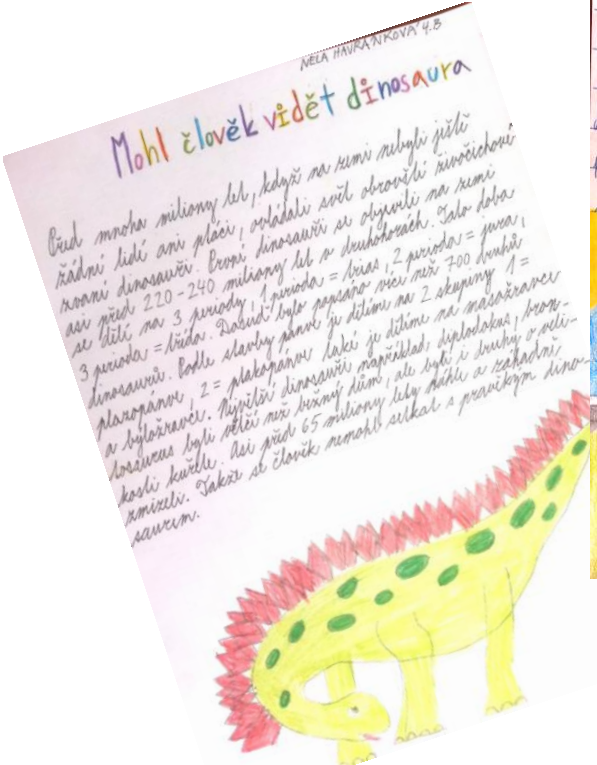 NELA HAVRÁNKOVÁ 4.B
Mohl člověk vidět dinosaura
Před mnoha miliony let, když na zemi nebyli ještě
žádní lidé ani ptáci, ovládali svět obrovští živočichové
zvaní dinosauři. První dinosauři se objevili na zemi
asi před 220-240 miliony let v druhohorách. Tato doba
se dělí na 3 periody, 1 perioda = trias, 2 perioda = jura,
3 perioda = křída. Dosud bylo popsáno více než 700 druhů
dinosaurů. Podle stavby pánve je dělíme na 2 skupiny 1=
plazopánvé, 2= ptakopánvé také je dělíme na masožravce
a býložravce. Největší dinosauři například, diplodokus, bron-
tosaurus byli větší než běžný dům, ale byli i druhy o veli-
kosti kuřete. Asi před 65 miliony lety náhle a záhadně
zmizeli. Takže se člověk nemohl setkat s pravěkým dino-
saurem.